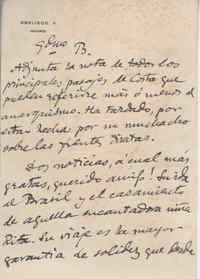 Gómo B.
Adjunta la nota de todos los
principales pasajes de Costa que
puedan referirse más o menos al
anarquismo. Ha tardado, por
estar hecha por un muchacho
sobre las fuentes directas.
Dos noticias, a cual más
gratas, querido amigo! Su ida
al Brasil y el casamiento
de aquella encantadora niña
Rita. Su viaje es la mayor
garantía de solidez que desde